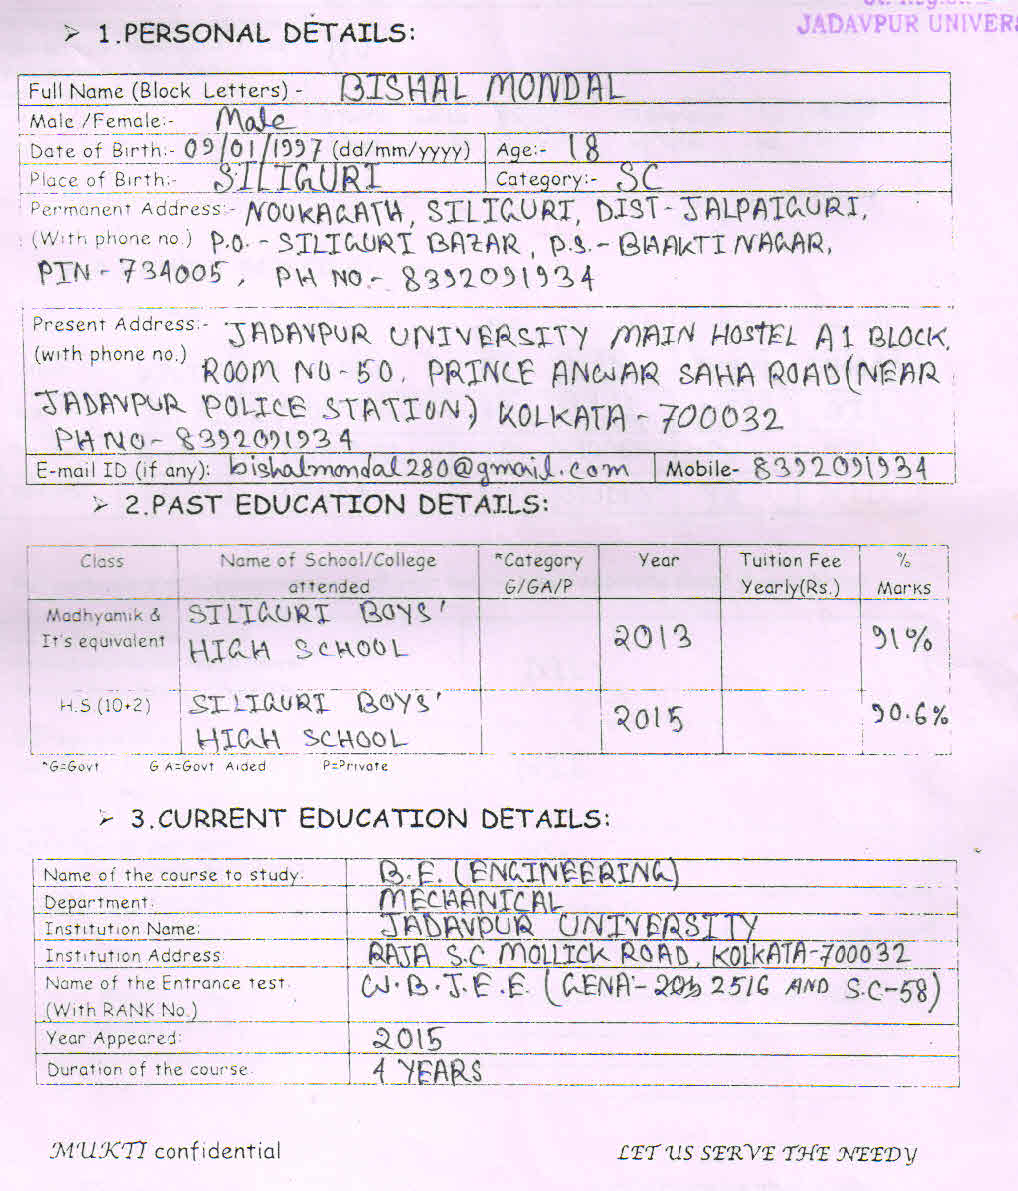 JADAVPUR UNIVERS
➢ 1.PERSONAL DETAILS:
Full Name (Block Letters) - BISHAL MONDAL
Male /Female:- Male
Date of Birth:- 09/01/1997 (dd/mm/yyyy) Age:- 18
Place of Birth:- SILIGURI Category:- SC
Permanent Address:- NOUKAGATH, SILIGURI, DIST- JALPAIGURI,
(With phone no.) P.O. - SILIGURI BAZAR, P.S. - BHAKTI NAGAR,
PIN - 734005, PH NO.- 8392091934
Present Address:- JADAVPUR UNIVERSITY MAIN HOSTEL A1 BLOCK,
(with phone no.) ROOM NO - 50, PRINCE ANWAR SAHA ROAD (NEAR
JADAVPUR POLICE STATION) KOLKATA - 700032
PH NO - 8392091934
E-mail ID (if any): bishalmondal280@gmail.com Mobile- 8392091934
➢ 2.PAST EDUCATION DETAILS:
Class Name of School/College *Category Year Tuition Fee %
attended G/GA/P Yearly(Rs.) Marks
Madhyamik & SILIGURI BOYS'
It's equivalent HIGH SCHOOL 2013 91%
H.S.(10+2) SILIGURI BOYS' 2015 90.6%
HIGH SCHOOL
*G=Govt G A=Govt Aided P=Private
➢ 3.CURRENT EDUCATION DETAILS:
Name of the course to study: B.E. (ENGINEERING)
Department: MECHANICAL
Institution Name: JADAVPUR UNIVERSITY
Institution Address: RAJA S.C MOLLICK ROAD, KOLKATA-700032
Name of the Entrance test. W.B.J.E.E. (GENA'- 2516 AND S.C-58)
(With RANK No.)
Year Appeared: 2015
Duration of the course. 4 YEARS
MUKTI confidential LET US SERVE THE NEEDY